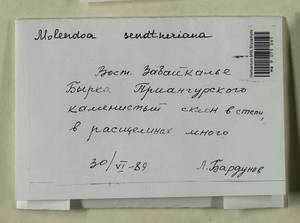 Molendoa sendtneriana
Вост. Забайкалье
Бырка Приангурского
каменистый склон в степи,
в расщелинах много
30/VI-89 Л. Бардунов